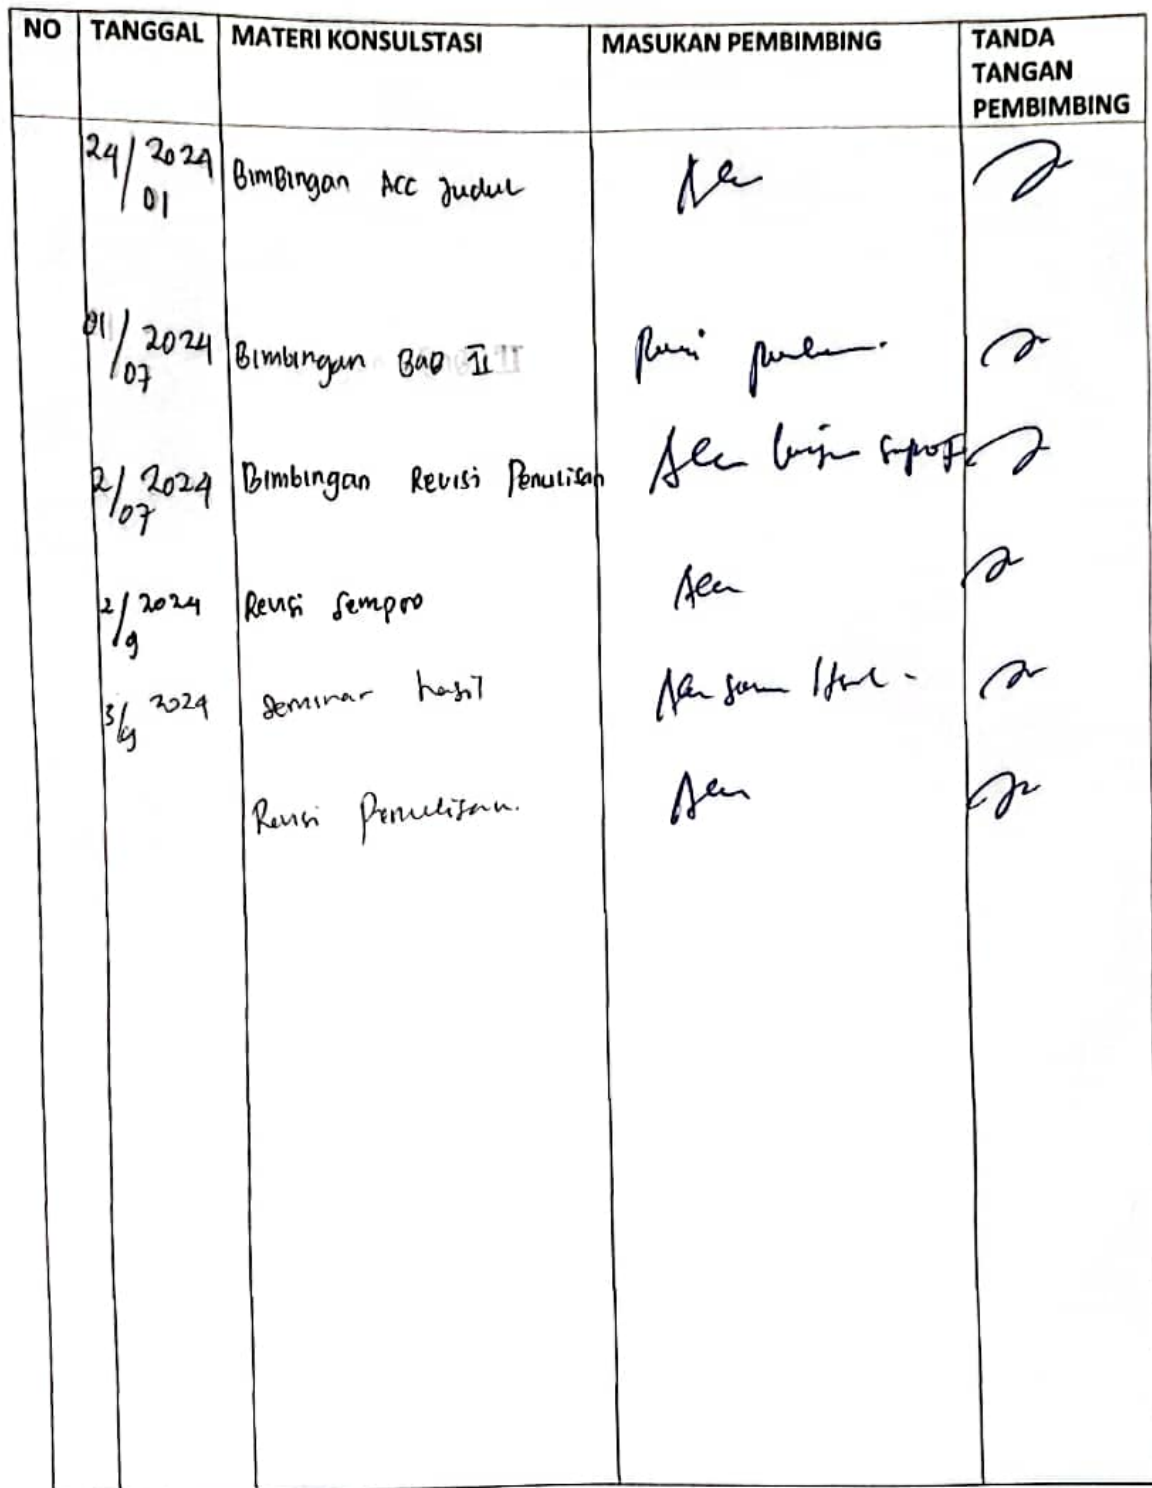 NO TANGGAL MATERI KONSULSTASI MASUKAN PEMBIMBING TANDA
TANGAN
PEMBIMBING
24/01 2024 Bimbingan Acc Judul Acc
01/07 2024 Bimbingan Bab II
2/07 2024 Bimbingan Revisi Penulisan Acc
2/9 2024 Revisi Sempro Acc
3/9 2024 Seminar hasil Acc
Revisi Penulisan. Acc